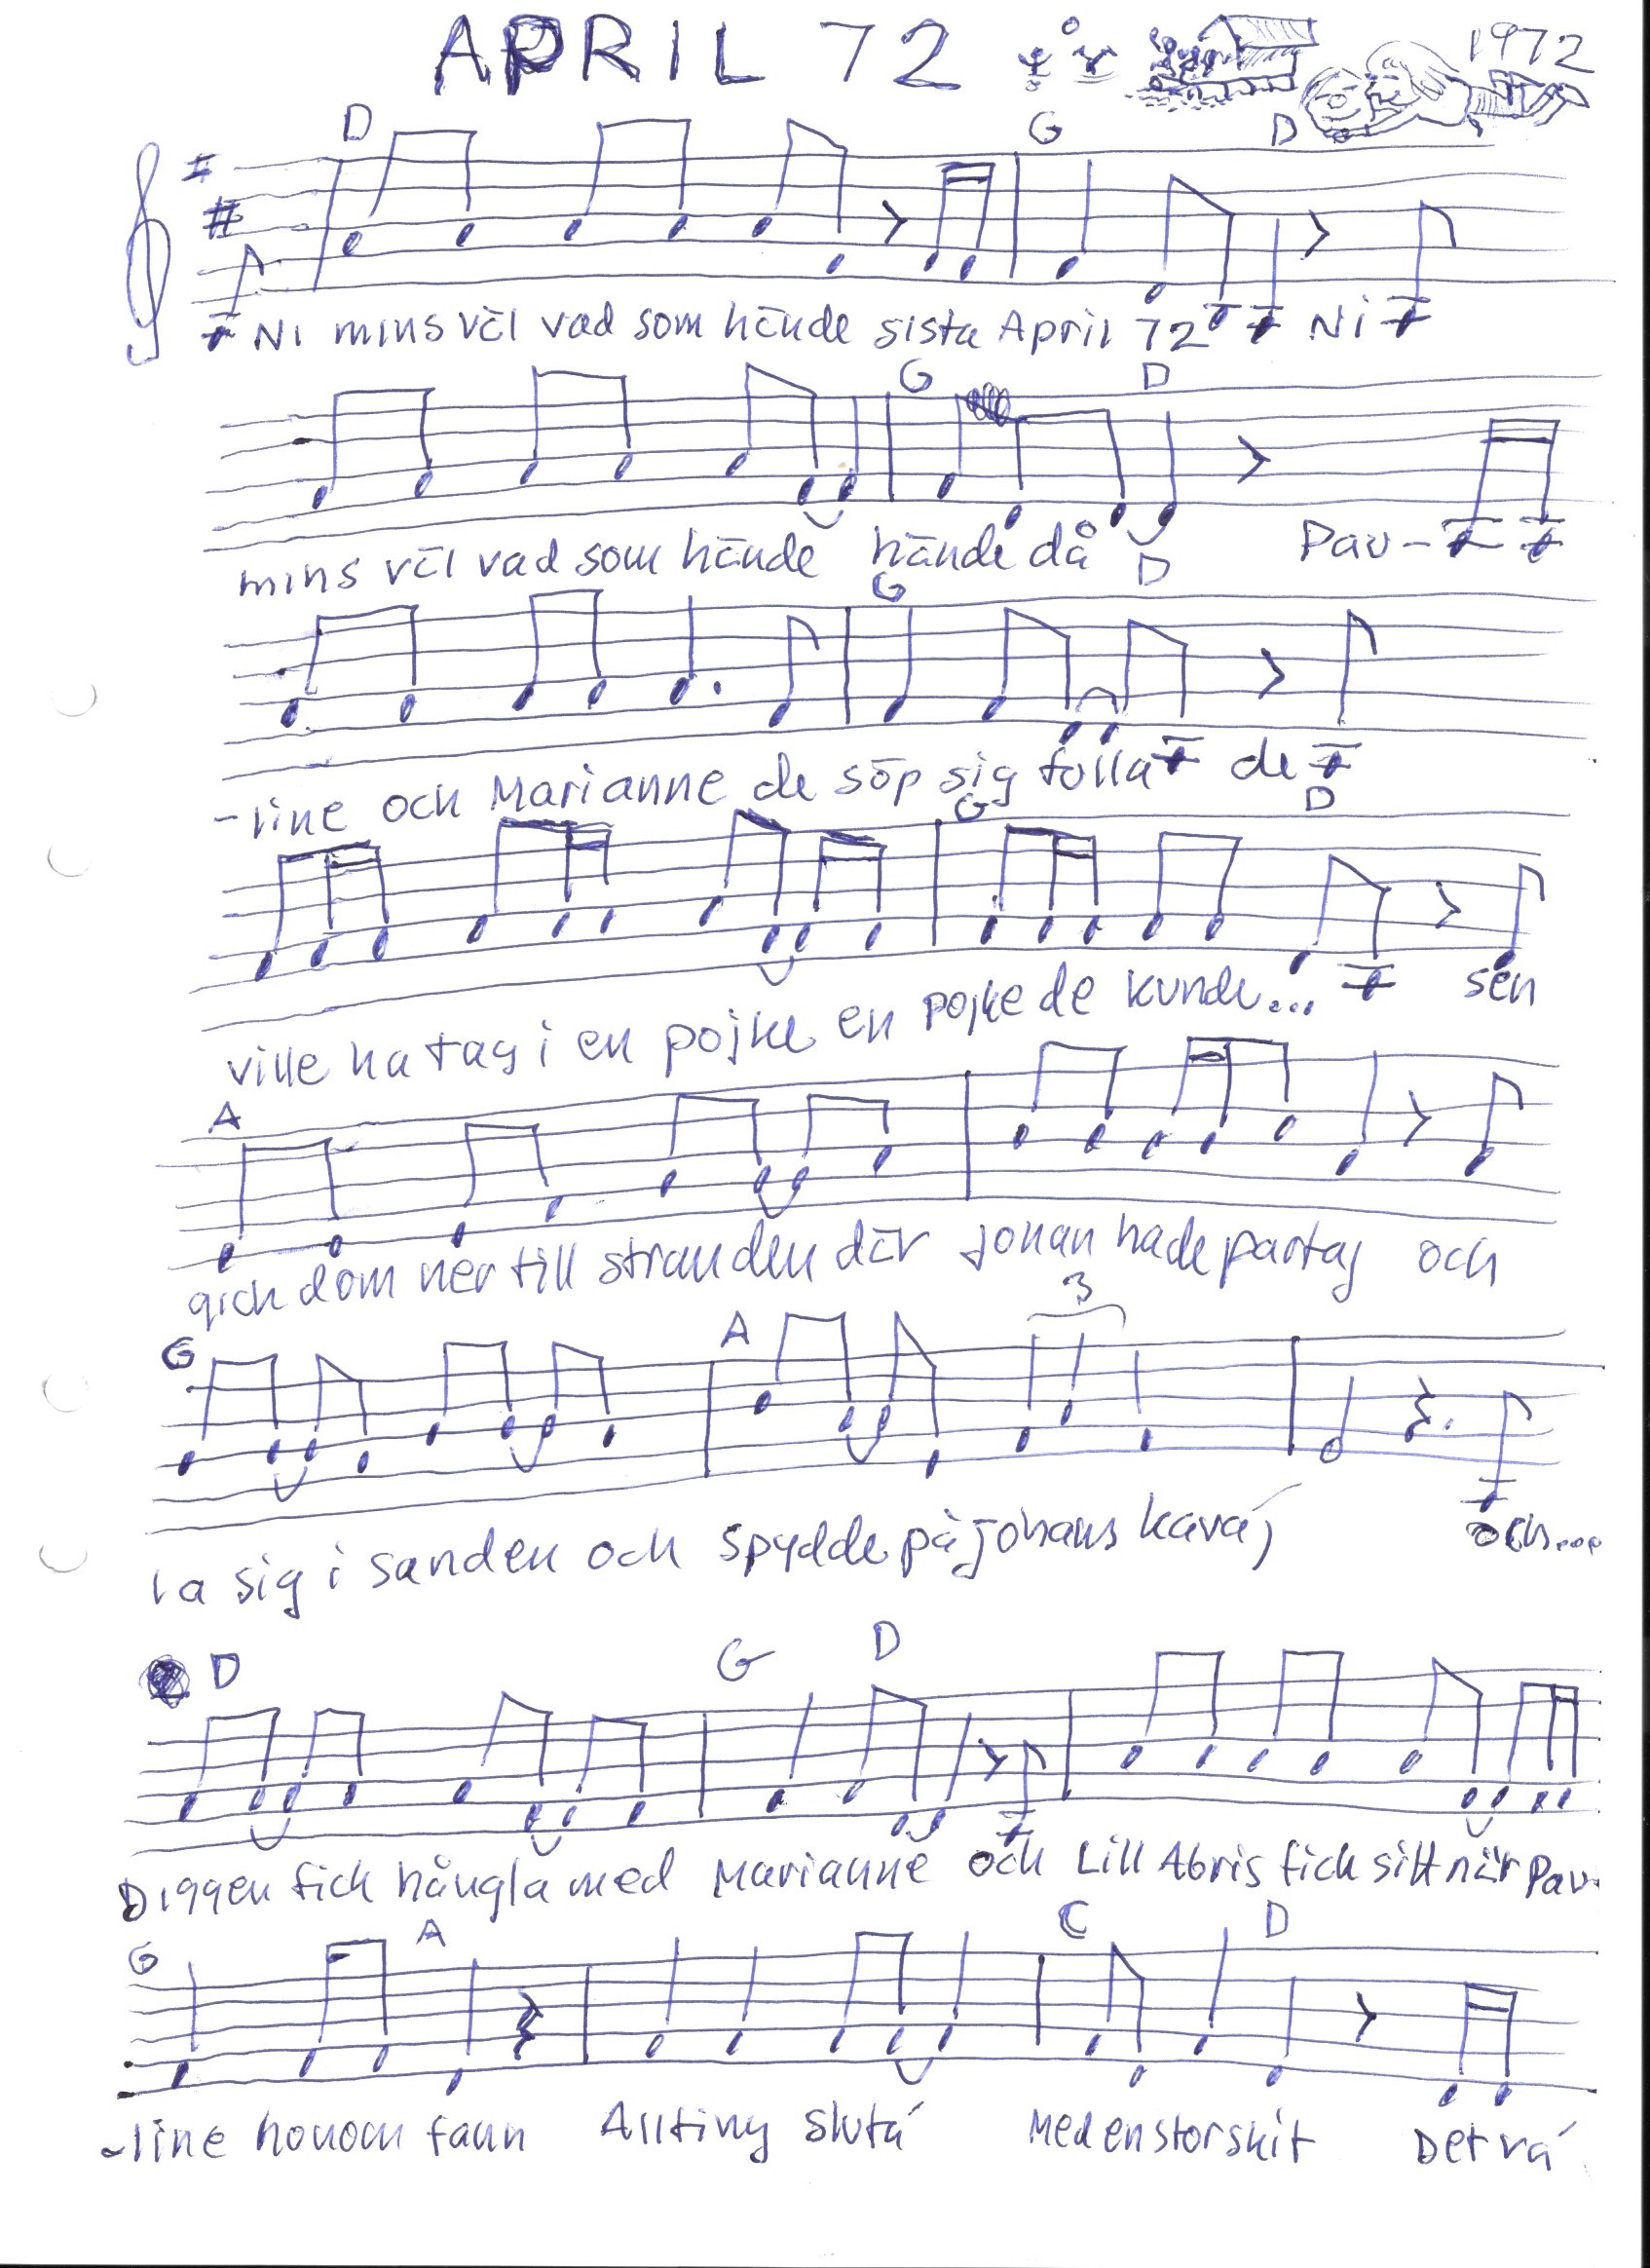 APRIL 72
1972
D G D
Ni mins väl vad som hände sista April 72 Ni
G D
mins väl vad som hände hände då Pau-
G D
-line och Marianne de söp sig fulla de
G D
ville ha tag i en pojke en pojke de kunde... sen
A
gick dom ner till stranden där Johan hade partaj och
G A 3
la sig i sanden och spydde på Johans kavaj och...
D G D
Diggen fick hångla med Marianne och Lill Abris fick sitt när Pau-
G A C D
-line honom fann Allting slutá Med en stor skit Det vá